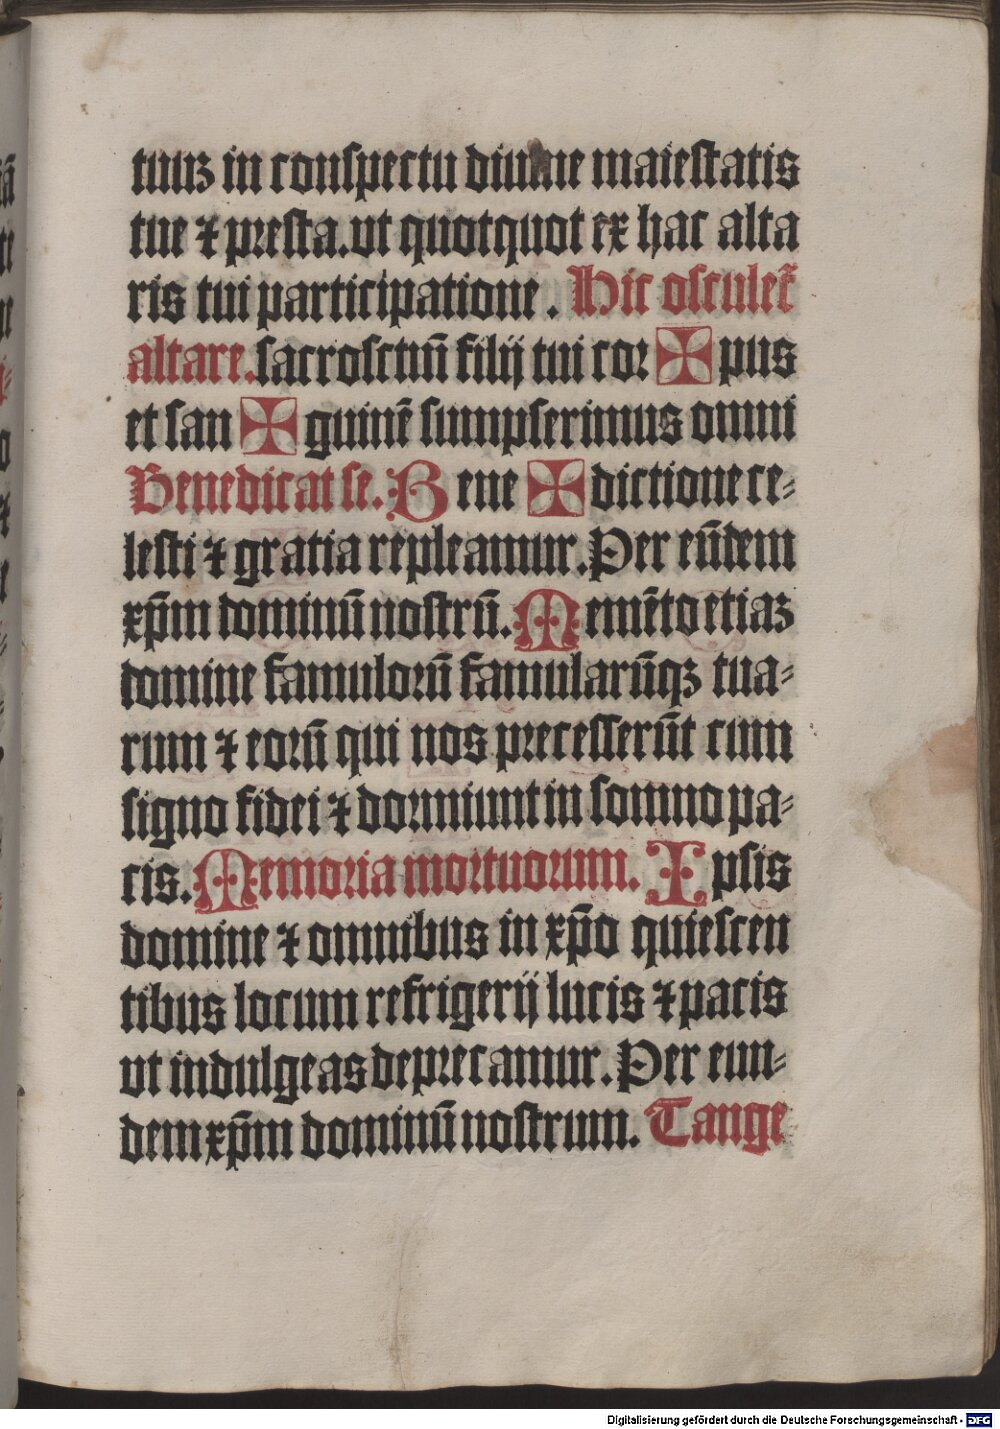 tuuꝫ in conspectu diuine maiestatis
tue ⁊ presta.vt quotquot ex hac alta
ris tui participatione . Hic osculet᷑
altare.sacrosctm̄ filij tui cor ✠ pus
et san ✠ guinē sumpserimus omni
Benedicat se. Bene ✠ dictione ce⸗
lesti ⁊ gratia repleamur.Per eūdem
xp̄m dominū nostrū. Memēto etiaꝫ
domine famulorū famularūqꝫ tua⸗
rum ⁊ eorū qui nos precesserūt cum
signo fidei ⁊ dormiunt in somno pa⸗
cis. Memoria mortuorum. Ipsis
domine ⁊ omnibus in xp̄o quiescen
tibus locum refrigerij lucis ⁊ pacis
vt indulgeas deprecamur. Per eun⸗
dem xp̄m dominū nostrum. Tange
Digitalisierung gefördert durch die Deutsche Forschungsgemeinschaft - DFG